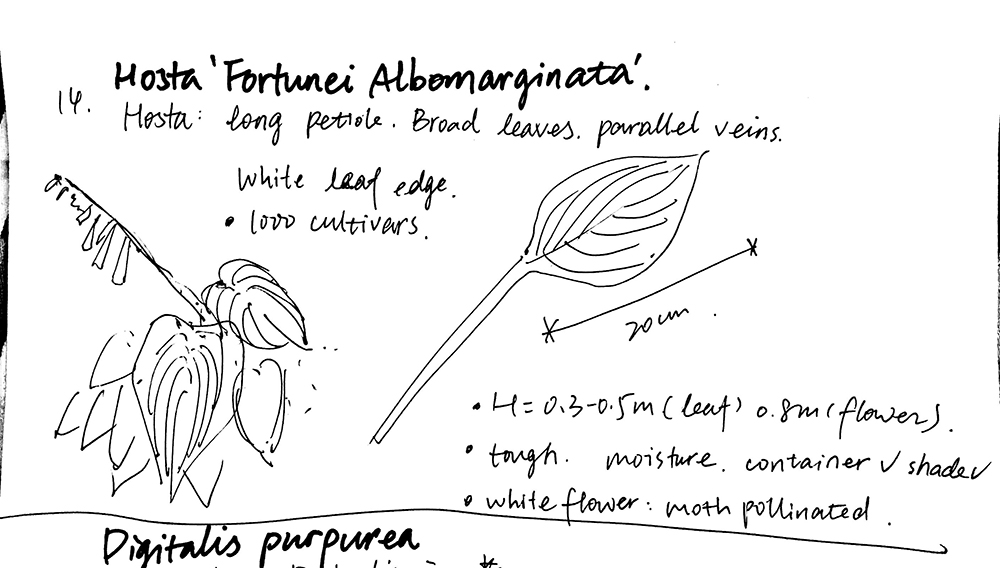 Hosta 'Fortunei Albomarginata'.
14.
Hosta: long petiole. Broad leaves. parallel veins.
White leaf edge.
• 1000 cultivars.
20cm.
• H=0.3-0.5m (leaf) 0.8m (flowers).
• tough. moisture. container √ shade √
• white flower: moth pollinated.
Digitalis purpurea